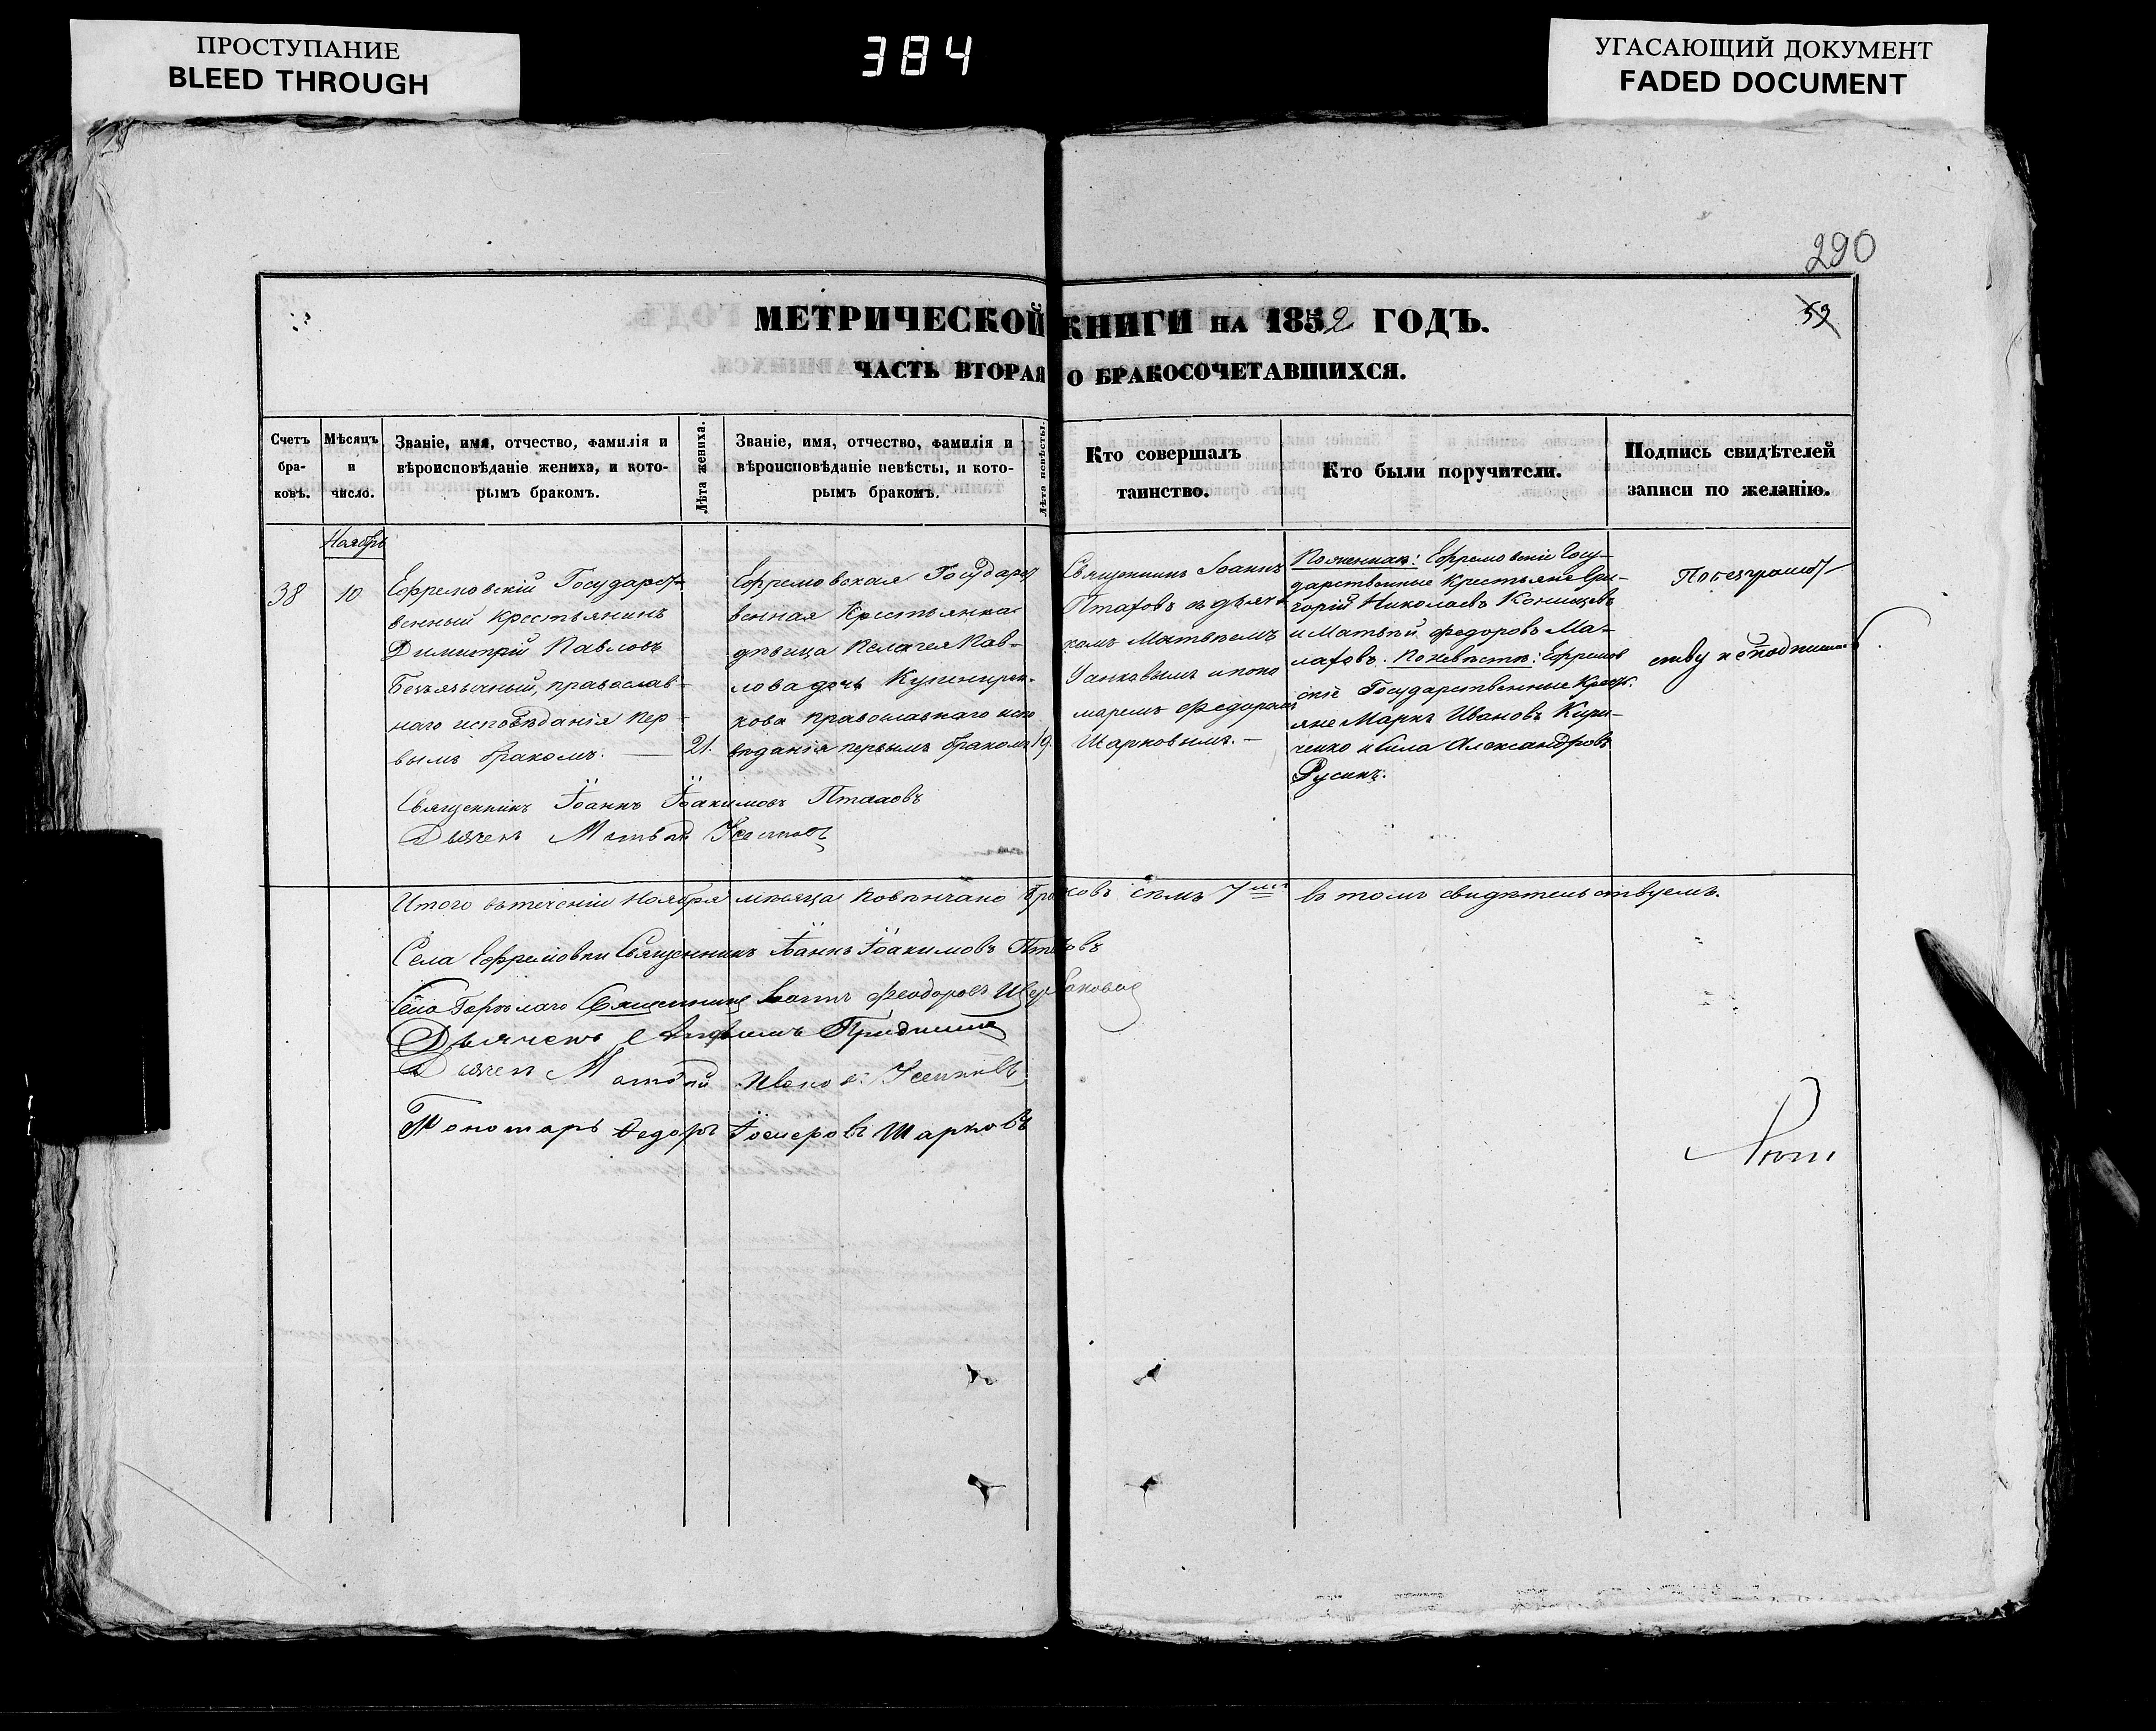 ПРОСТУПАНИЕ
BLEED THROUGH
384
УГАСАЮЩИЙ ДОКУМЕНТ
FADED DOCUMENT
290
МЕТРИЧЕСКОЙ КНИГИ НА 1852 ГОДЪ.
59
ЧАСТЬ ВТОРАЯ О БРАКОСОЧЕТАВШИХСЯ.
Счетъ
бра-
ковъ.
Мѣсяцъ
и
число.
Званіе, имя, отчество, фамилія и
вѣроисповѣданіе жениха, и кото-
рымъ бракомъ.
Лѣта жениха.
Званіе, имя, отчество, фамилія и
вѣроисповѣданіе невѣсты, и кото-
рымъ бракомъ.
Лѣта невѣсты.
Кто совершалъ
таинство.
Кто были поручители.
Подпись свидѣтелей
записи по желанію.
Ноябрь
38
10
Ефремовскій Государст-
венный Крестьянинъ
Димитрій Павловъ
Безъязычный, православ-
наго исповѣданія пер-
вымъ бракомъ.
21.
Ефремовская Государст
венная Крестьянка
дѣвица Пелагея Пав-
лова дочь
кова православнаго испо
вѣданія первымъ бракомъ
19.
Священникъ Іоаннъ
Птаховъ съ дьяч
комъ Матвѣемъ
и поно
маремъ Федоромъ
Шарковымъ.
По женихѣ: Ефремовскіе Госу-
дарственные Крестьяне Гри-
горій Николаевъ
и Матвѣй Федоровъ Ма-
лаховъ. По невѣстѣ: Ефремов
скіе Государственные Крест.
яне Маркъ Ивановъ Кири-
ченко и Сила Александровъ
Русинъ.
По безграмот
ству не подписал
Священникъ Іоаннъ Іоакимовъ Птаховъ
Дьячекъ Матвѣй
Итого въ теченіи Ноября мѣсяца повѣнчано браковъ семь 7мь въ томъ свидѣтельствуемъ.
Села Ефремовки Священникъ Іоаннъ Іоакимовъ Птаховъ
Села Священникъ Іоаннъ Феодоровъ Щербаковъ
Дьячекъ
Дьячекъ Матвѣй Ивановъ
Пономарь Федоръ Шарковъ